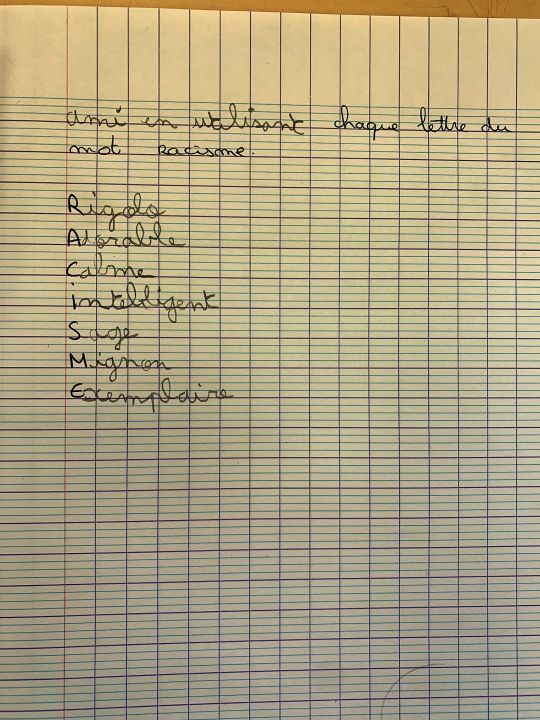 ami en utilisant chaque lettre du
mot racisme.
Rigolo
Adorable
Calme
intelligent
Sage
Mignon
Exemplaire